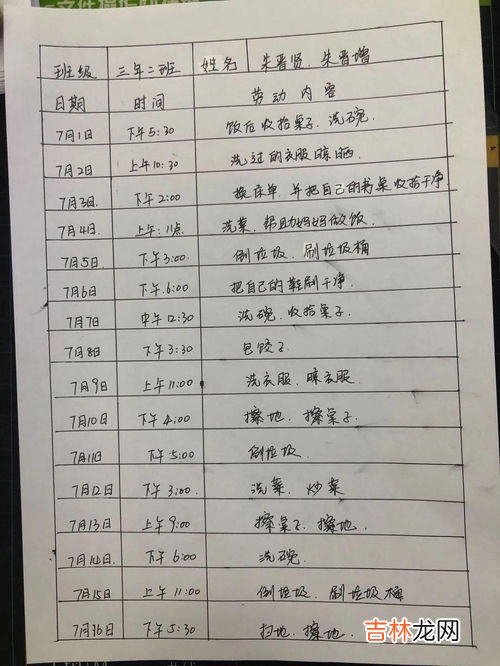 班级 三年二班 姓名 朱晋贤、朱晋增
日期 时间 劳动内容
7月1日 下午5:30 饭后收拾桌子、洗碗.
7月2日 上午10:30 洗过的衣服晾晒
7月3日. 下午2:00 换床单、并把自己的书桌收拾干净
7月4日. 上午:11点 洗菜、帮助妈妈做饭
7月5日 下午3:00 倒垃圾、刷垃圾桶
7月6日 下午.6:00 把自己的鞋刷干净.
7月7日 中午12:30 洗碗.收拾桌子.
7月8日 下午3:30 包饺子.
7月9日 上午11:00 洗衣服、晾衣服
7月10日 下午4:00 擦地、擦桌子.
7月11日 下午5:00 倒垃圾.
7月12日 下午3:00. 洗菜、炒菜
7月13日 上午9:00 擦桌子、擦地.
7月14日. 下午6:00 洗碗.
7月15日 上午11:00 倒垃圾、刷垃圾桶
7月16日 下午5:30 扫地、擦地.
吉林龙网